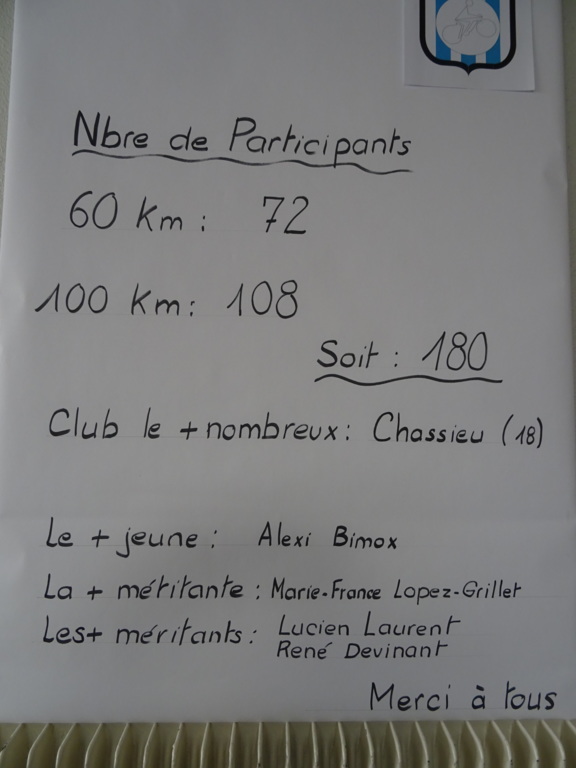 Nbre de Participants
60 Km : 72
100 Km : 108
Soit : 180
Club le + nombreux : Chassieu (18)
Le + jeune : Alexi Bimox
La + méritante : Marie-France Lopez-Grillet
Les + méritants : Lucien Laurent
René Devinant
Merci à tous